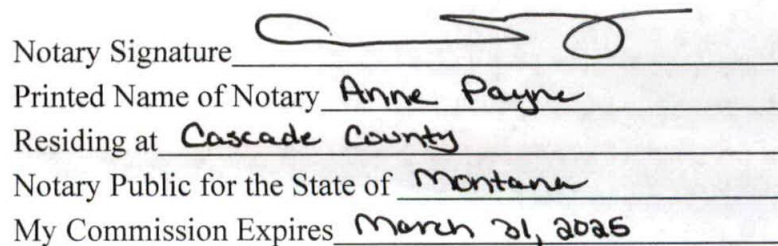 Notary Signature
Printed Name of Notary Anne Payne
Residing at Cascade County
Notary Public for the State of Montana
My Commission Expires March 21, 2025